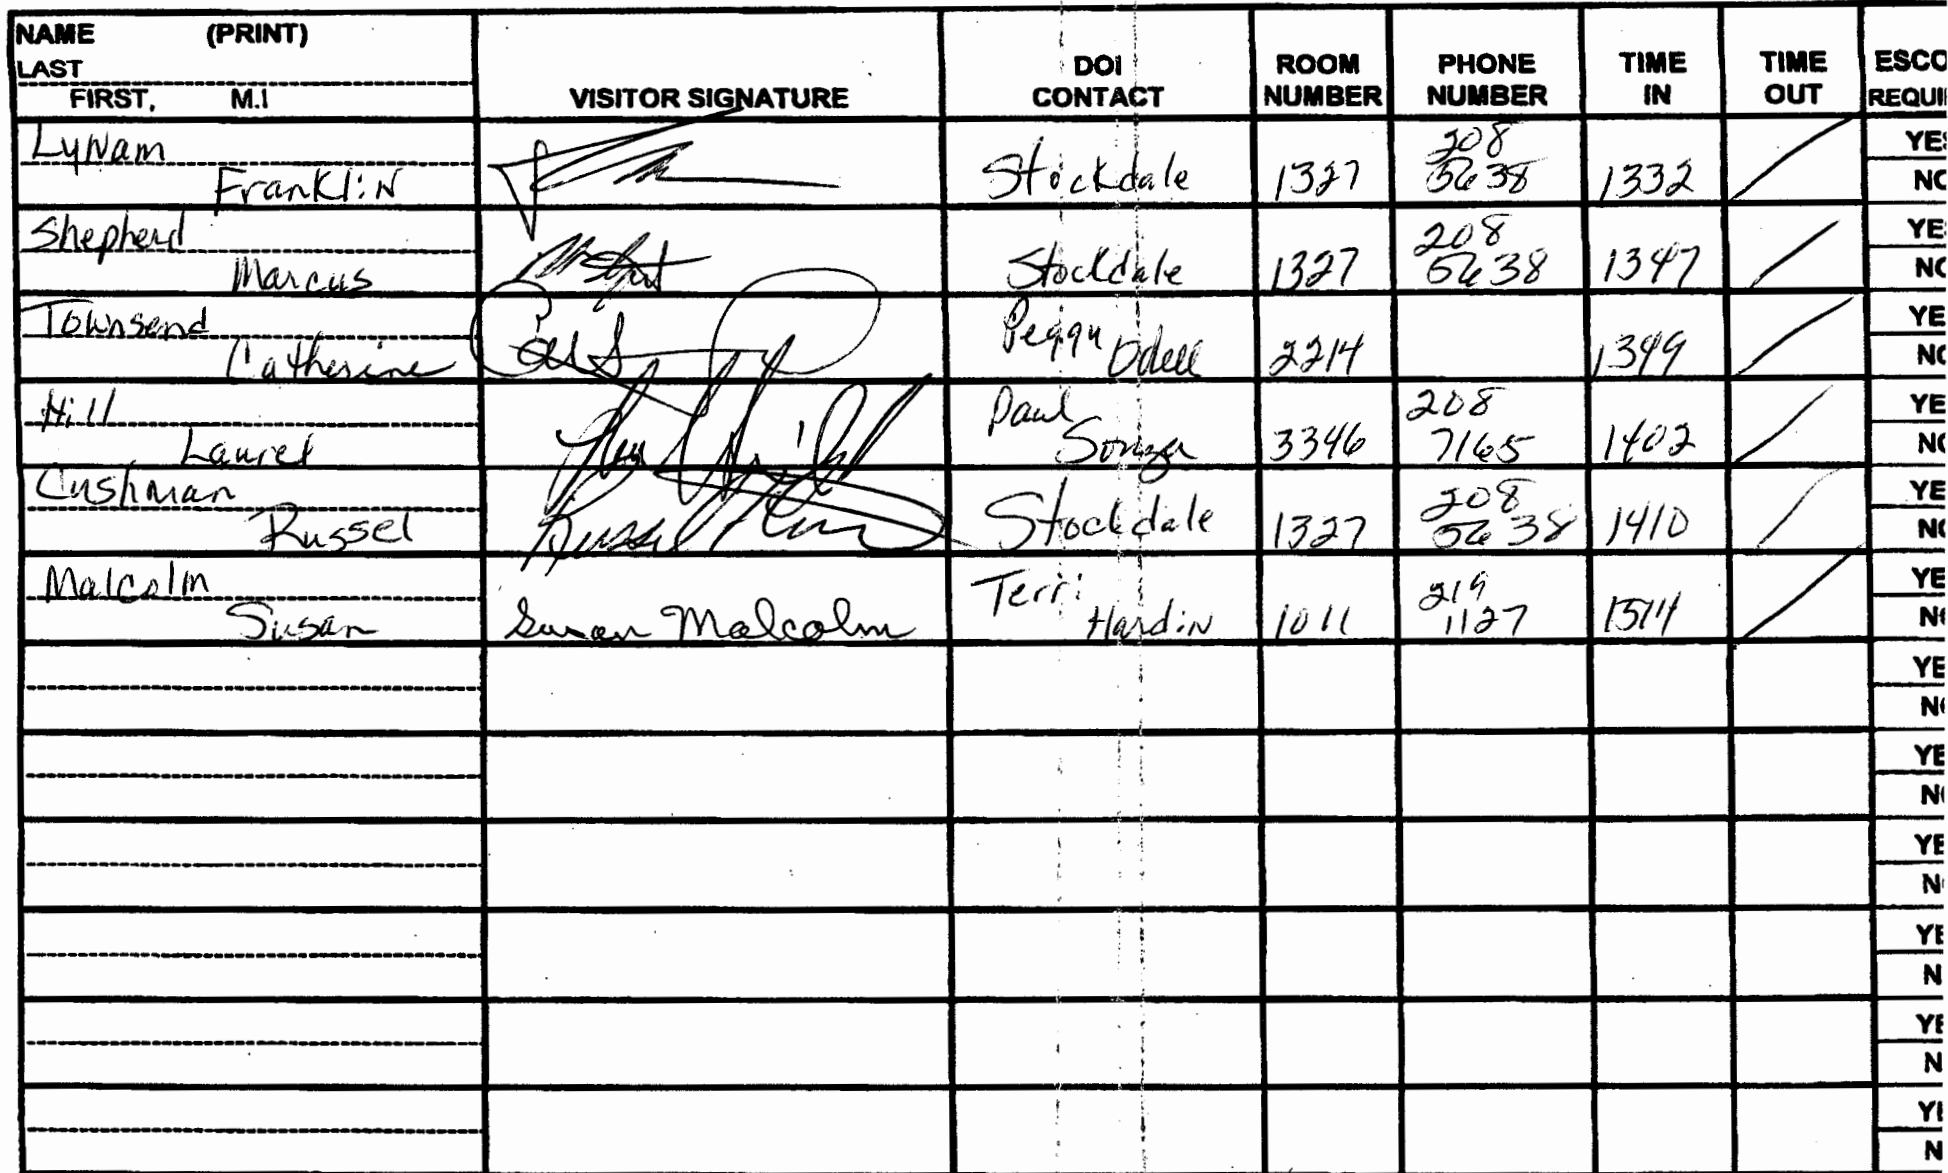 NAME (PRINT)
LAST
FIRST, M.I
VISITOR SIGNATURE
DOI
CONTACT
ROOM
NUMBER
PHONE
NUMBER
TIME
IN
TIME
OUT
ESCO
REQUI
Lynam
Franklin
Stockdale
1327
208
5638
1332
YES
NO
Shepherd
Marcus
Stockdale
1327
208
5638
1347
YE
NO
Townsend
Catherine
Peggy
Odell
2214
1349
YE
NO
Hill
Laurel
Paul
Souza
3346
208
7165
1402
YE
NO
Cushman
Russel
Russel
Stockdale
1327
208
5638
1410
YE
NO
Malcolm
Susan
Susan Malcolm
Terri
Hardin
1011
219
1127
1514
YE
N
YE
N
YE
N
YE
N
YE
N
YE
N
YE
N